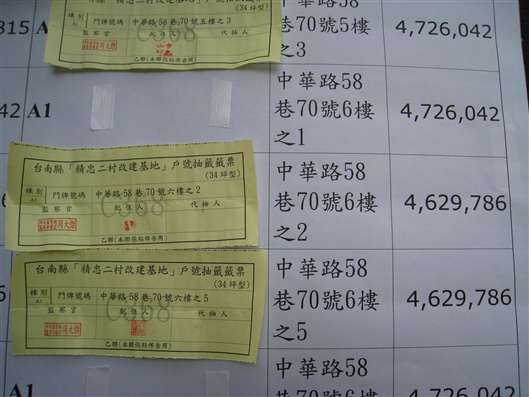 門牌號碼 中華路58巷70號五樓之3
(34坪型)
監察官 起住人 代抽人
乙聯(本聯張貼佈告用)
815
中華路58
巷70號5樓
之3
4,726,042
42
A1
中華路58
巷70號6樓
之1
4,726,042
台南縣「精忠二村改建基地」戶號抽籤籤票
(34坪型)
種別
A1
門牌號碼 中華路58巷70號六樓之2
監察官 起住人 代抽人
乙聯(本聯張貼佈告用)
中華路58
巷70號6樓
之2
4,629,786
台南縣「精忠二村改建基地」戶號抽籤籤票
(34坪型)
種別
A1
門牌號碼 中華路58巷70號六樓之5
監察官 起住人 代抽人
乙聯(本聯張貼佈告用)
中華路58
巷70號6樓
之5
4,629,786
A1
中華路58
巷70號6樓
4,726,042